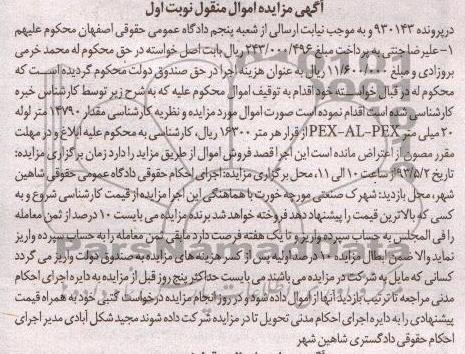 آگهی مزایده اموال منقول نوبت اول
درپرونده ۹۳۰۱۴۳ و به موجب نیابت ارسالی از شعبه پنجم دادگاه عمومی حقوقی اصفهان محکوم علیهم
۱-علیرضا جنتی به پرداخت مبلغ ۲۴۳/۰۰۰/۴۹۶ ریال بابت اصل خواسته در حق محکوم له محمد خرمی
بروزادی و مبلغ ۱۱/۶۰۰/۰۰۰ ریال به عنوان هزینه اجرا در حق صندوق دولت محکوم گردیده است که
محکوم له در قبال خواسته خود اقدام به توقیف اموال محکوم علیه که به شرح زیر توسط کارشناس خبره
کارشناسی شده است اقدام نموده است صورت اموال مورد مزایده و نظریه کارشناسی مقدار ۱۴۷۹۰ متر لوله
۲۰ میلی متر PEX-AL-PEX از قرار هر متر ۱۶۳۰۰ ریال، کارشناسی به محکوم علیه ابلاغ و در مهلت
مقرر مصون از اعتراض مانده است این اجرا قصد فروش اموال از طریق مزاید را دارد زمان برگزاری مزایده:
تاریخ ۹۳/۵/۲ ساعت ۱۰ الی ۱۱، محل برگزاری مزایده: اجرای احکام حقوقی دادگاه عمومی حقوقی شاهین
شهر، محل بازدید: شهرک صنعتی مورچه خورت با هماهنگی این اجرا مزایده از قیمت کارشناسی شروع و به
کسی که بالاترین قیمت را پیشنهاد دهد فروخته خواهد شد برنده مزایده می بایست ۱۰ درصد از ثمن معامله
را فی المجلس به حساب سپرده واریز و تا یک هفته فرصت دارد مابقی ثمن معامله را به حساب سپرده واریز
نماید والا ضمن ابطال مزایده ۱۰ درصد اولیه پس از کسر هزینه های مزایده به صندوق دولت واریز می گردد
کسانی که مایل به شرکت در مزایده می باشند می بایست حداکثر پنج روز قبل از مزایده به دایره اجرای احکام
مدنی مراجعه تا ترتیب بازدید آنها از اموال داده شود و در روز انجام مزایده درخواست کتبی خود به همراه قیمت
پیشنهادی را به دایره اجرای احکام مدنی تحویل تا در مزایده شرکت داده شوند مجید شکل آبادی مدیر اجرای
احکام حقوقی دادگستری شاهین شهر
ParsNamadData